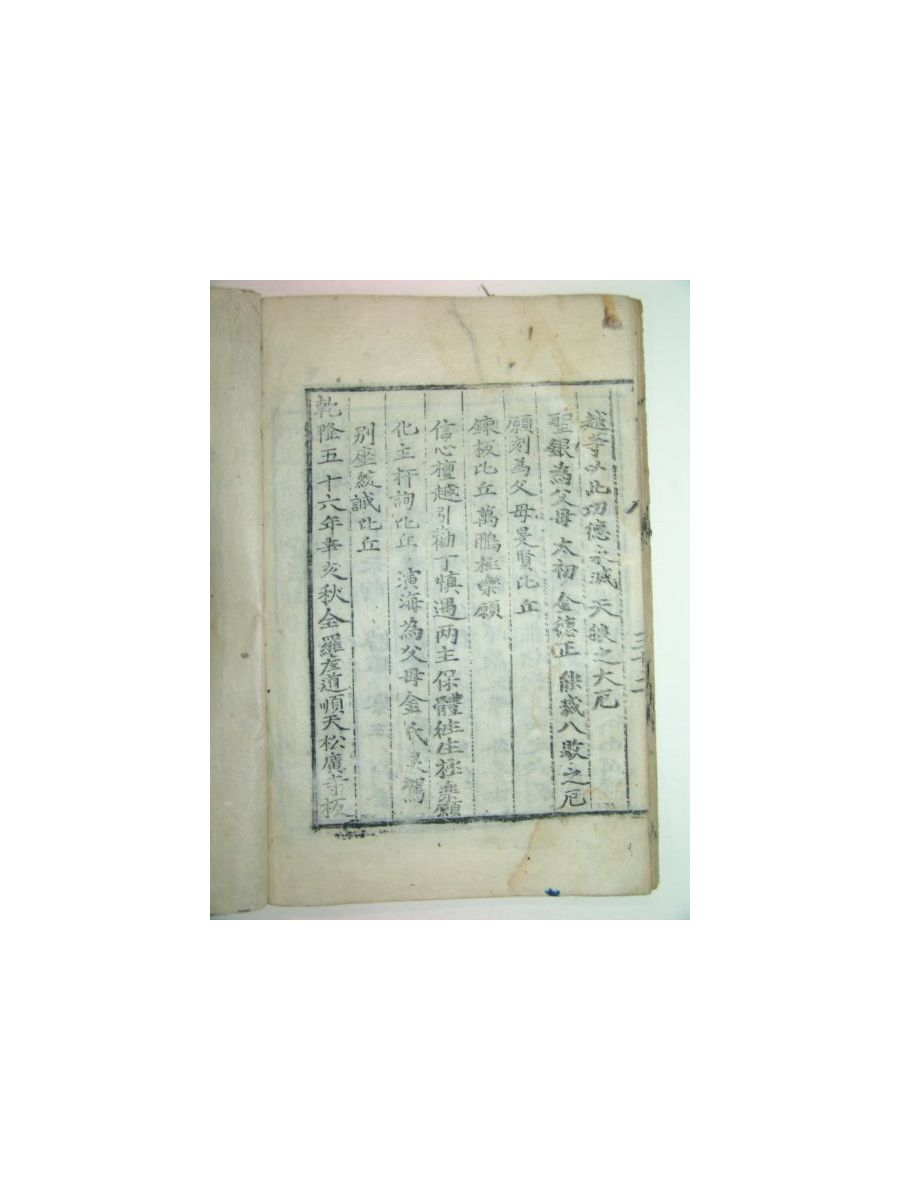 越等以此功德永滅 天狼之大厄
聖銀為父母 太初 金德正 能滅八歡之厄
願刻為父母 旻賢比丘
鍊板比丘萬鵬極樂願
信心檀越引勸丁慎遇兩主保體徃生極樂願
化主杆詢比丘 演海為父母金氏 灵駕
別座紋誠比丘
乾隆五十六年辛亥秋全羅左道順天松廣寺板
三十二